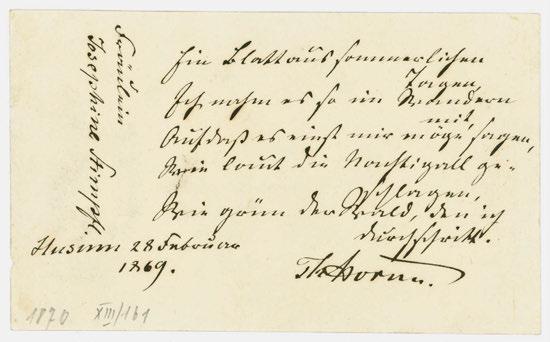 Ein Blatt aus sommerlichen
Tagen,
Ich nahm es so im Wandern
mit,
Auf daß es einst mir möge sagen,
Wie laut die Nachtigall ge-
schlagen,
Wie grün der Wald, den ich
durchschritt.
Th Storm.
Husum 28 Februar
1869.
Fräulein
Josephine
1870 XIII/161